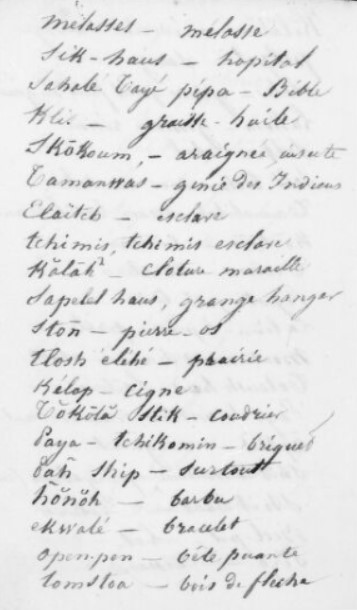 mélasses - mélasse
Sik-haus - hopital
Sahalé Tayé pépa - Bible
Klis - graisse - huile
Skōkoum, - araignée insecte
Tamanwas - génie des Indiens
Elaïteh - esclave
tchimis, tchimis esclave
Kălăh - cloture muraille
Sapelel haus, grange hangar
Stōn - pierre - os
Tlosh éléhé - prairie
Kélop - cigne
Tŏkŏlă stik - coudrier
Paya - tchikomin - briquet
ship - surtout
hŏnŏh - barbu
ekwalé - bracelet
open-pen - bête puante
- bois de fleche